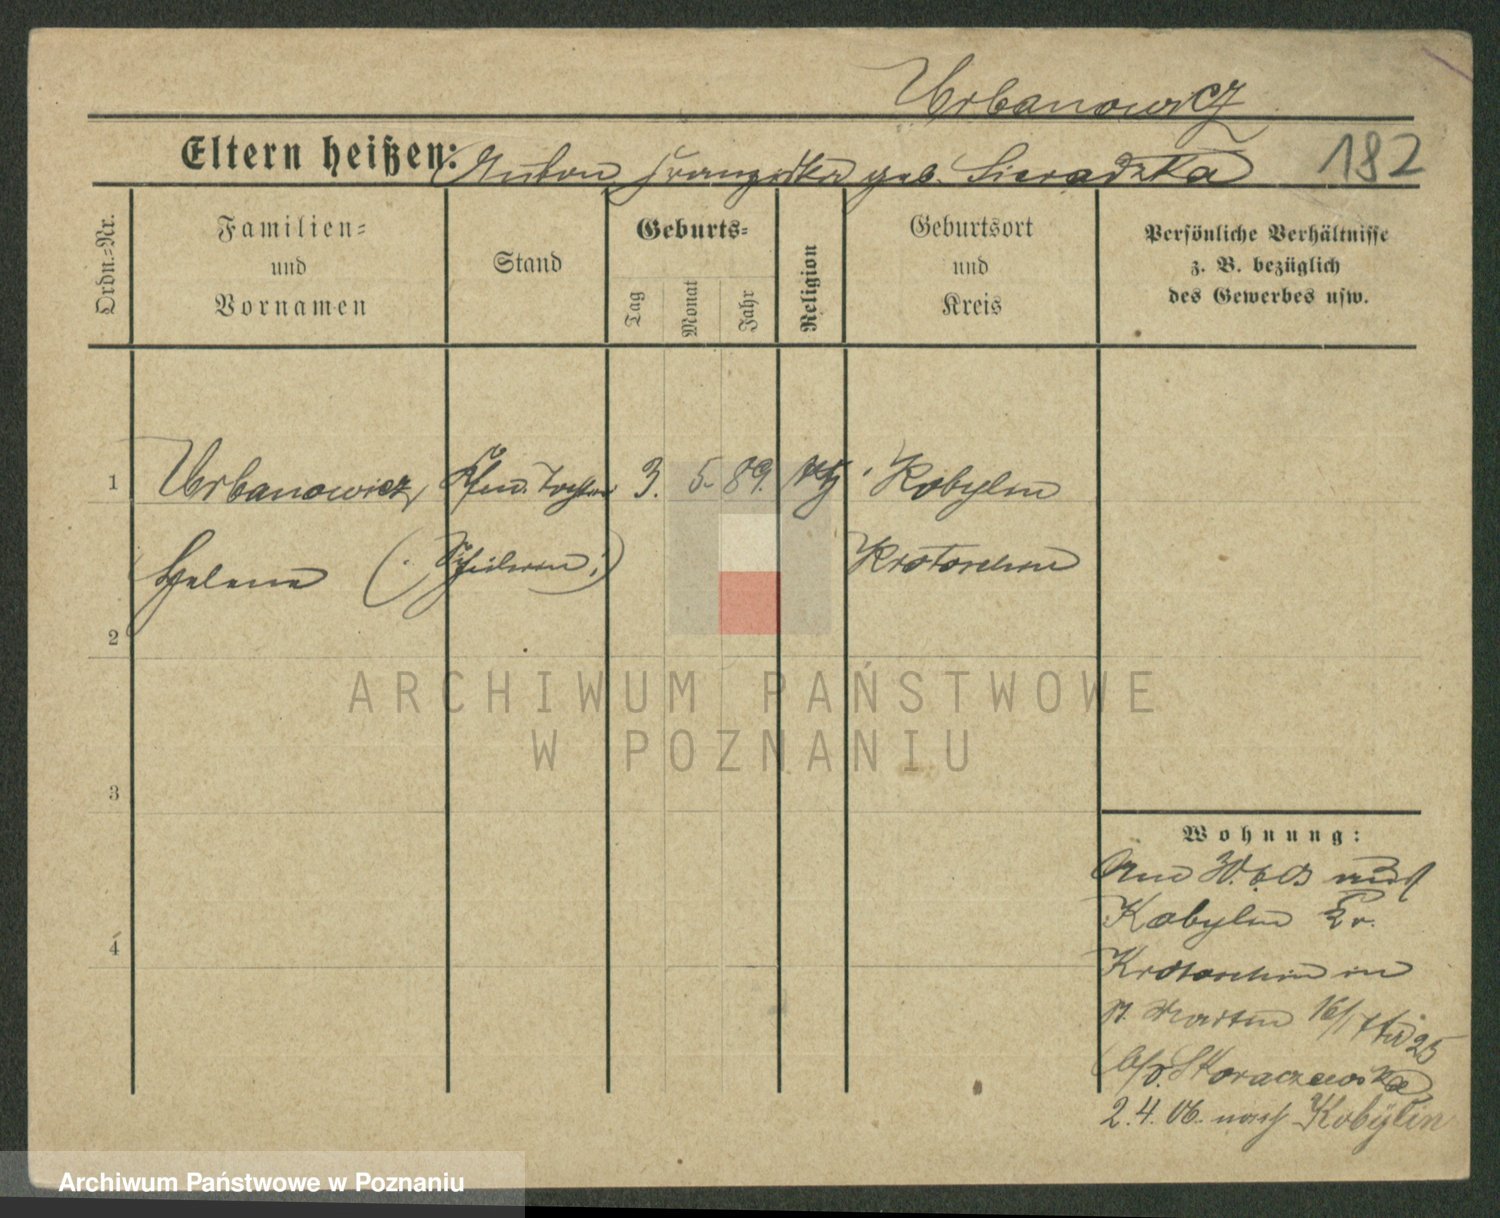 Urbanowicz
Eltern heißen: Anton Franziska geb. Sieradzka
182
Ordn.-Nr.
Familien-
und
Vornamen
Stand
Geburts-
Tag
Monat
Jahr
Religion
Geburtsort
und
Kreis
Persönliche Verhältnisse
z. B. bezüglich
des Gewerbes usw.
1 Urbanowicz, Tochter 3. 5. 89. Kobylin
Helena (Schülerin) Krotoschin
2
3
4
Wohnung:
Am 30. 6 03 aus
Kobylin Kr.
Krotoschin in
St. Martin 16/17
b/v. Skoraczewska
2. 4. 06. nach Kobylin
ARCHIWUM PAŃSTWOWE
W POZNANIU
Archiwum Państwowe w Poznaniu